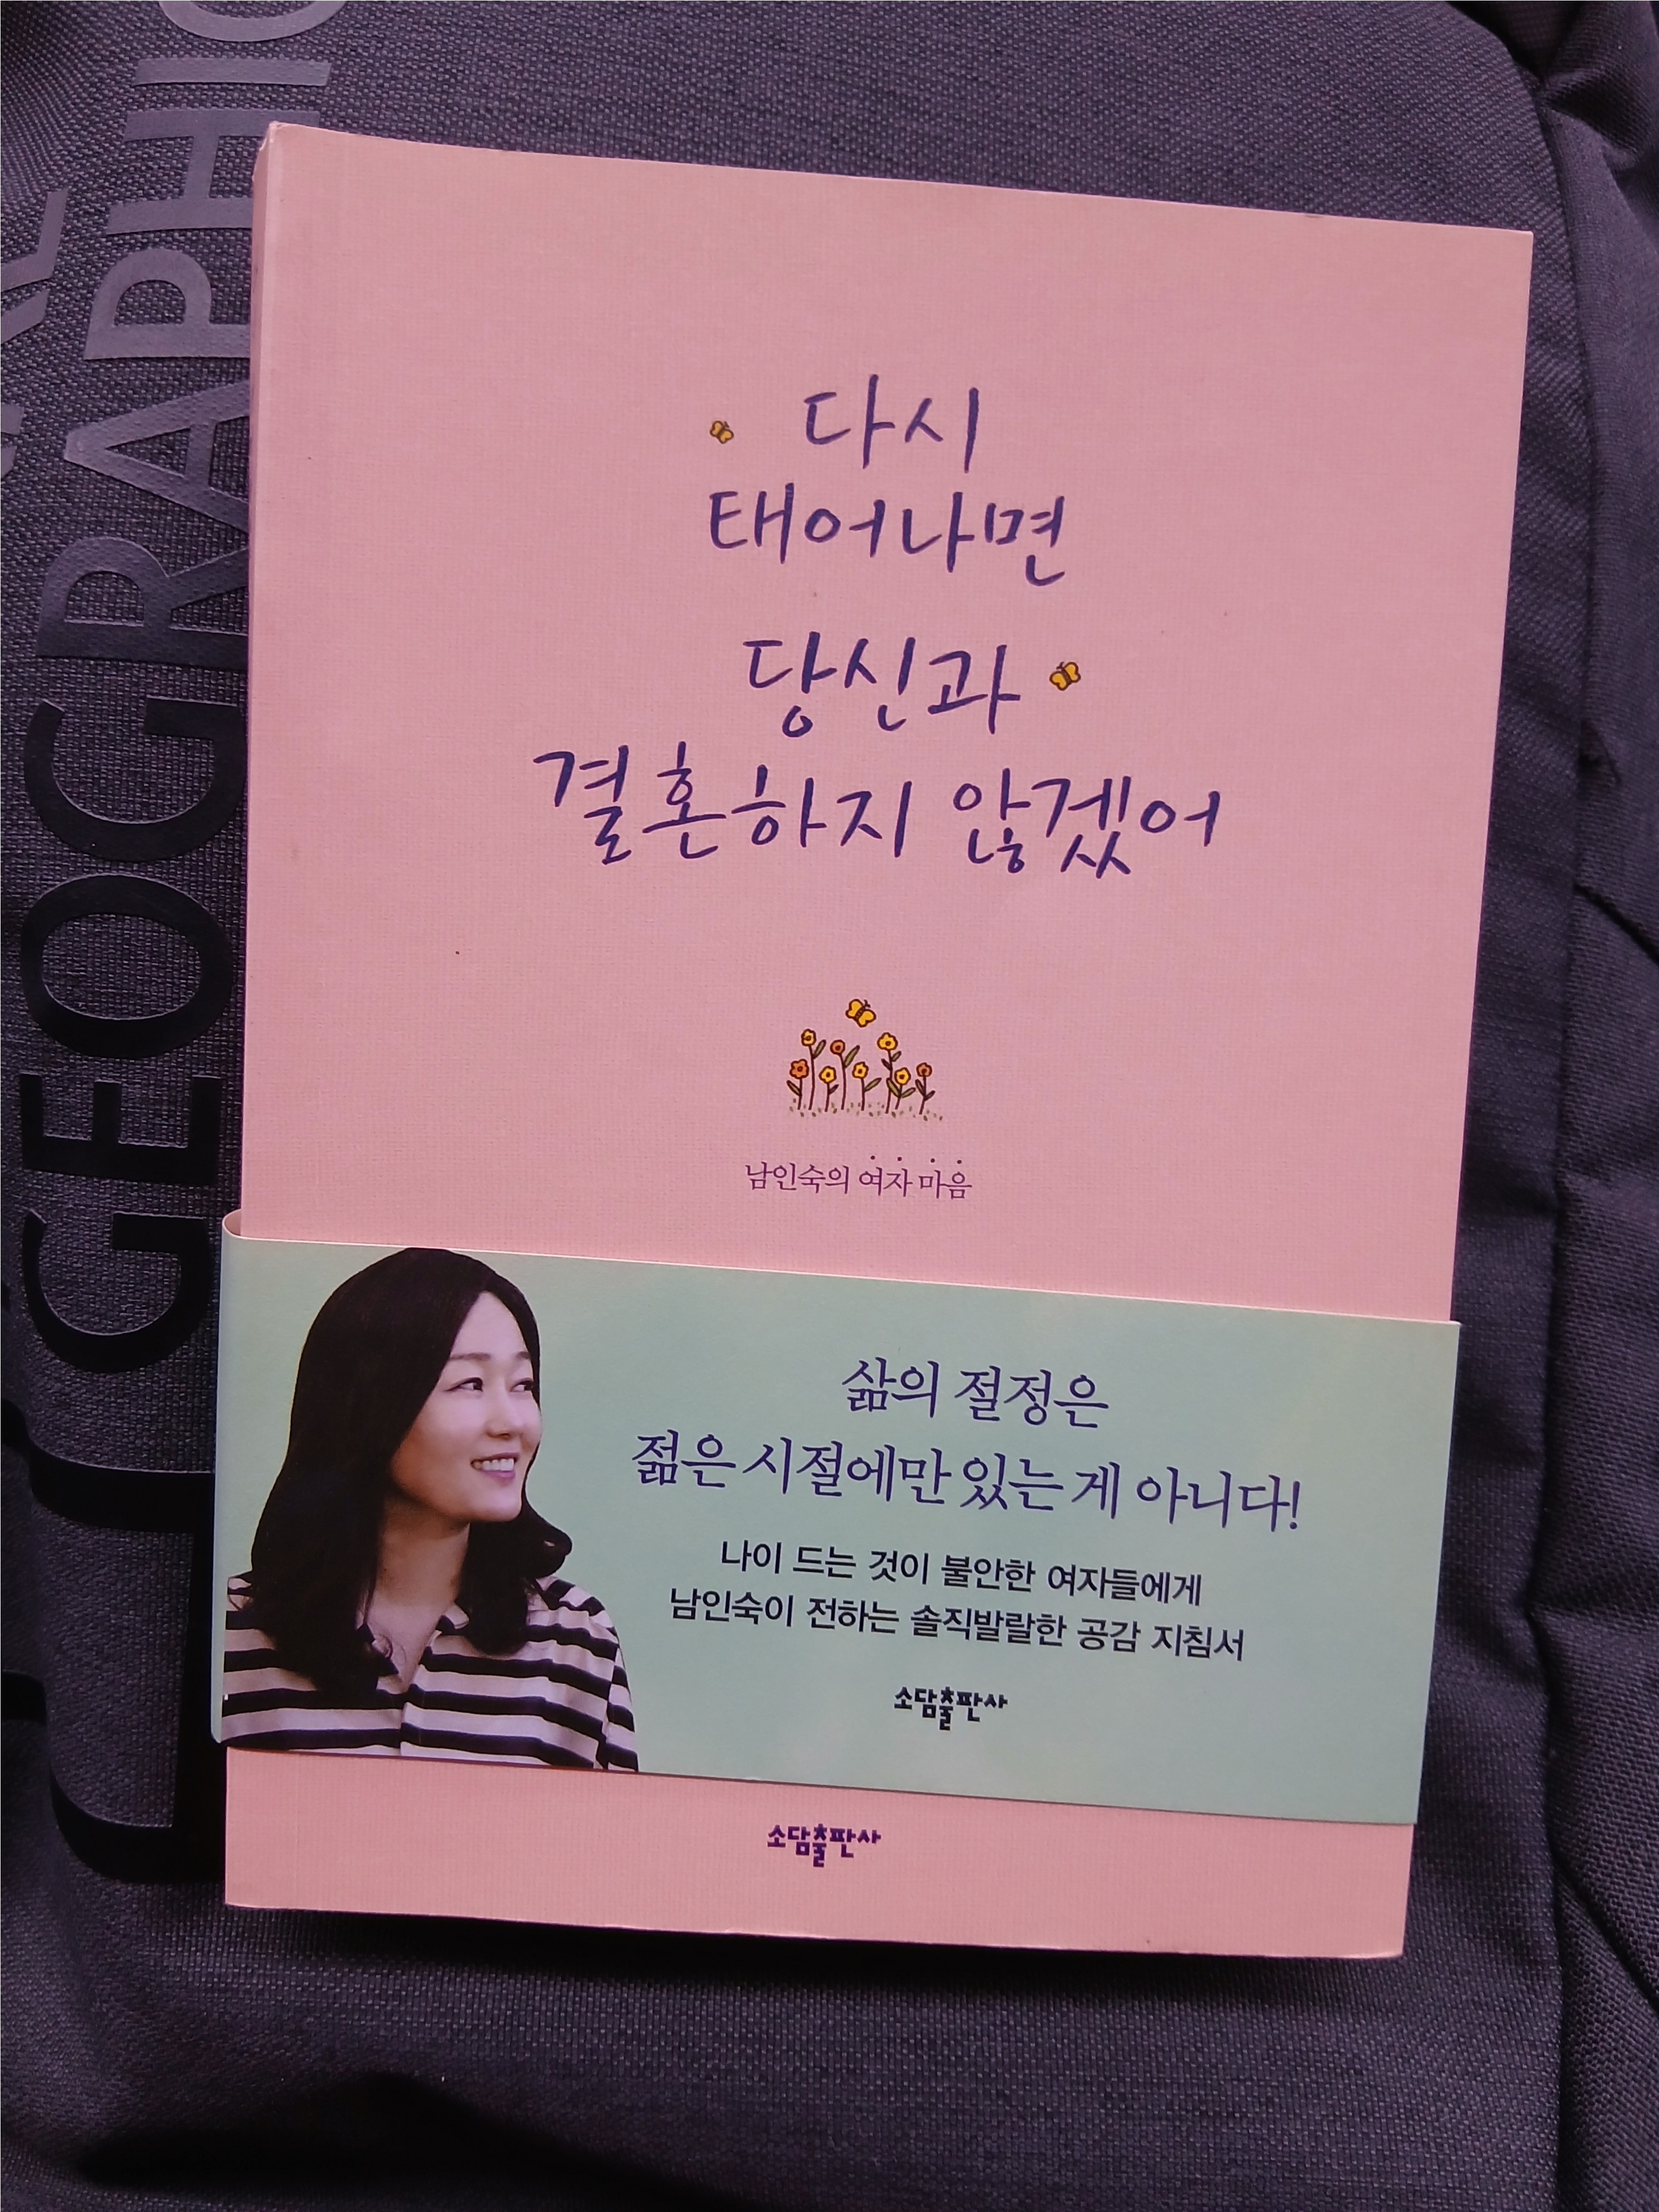 다시
태어나면
당신과
결혼하지 않겠어
남인숙의 여자 마음
삶의 절정은
젊은 시절에만 있는 게 아니다!
나이 드는 것이 불안한 여자들에게
남인숙이 전하는 솔직발랄한 공감 지침서
소담출판사
소담출판사
GEOGRAPHIC